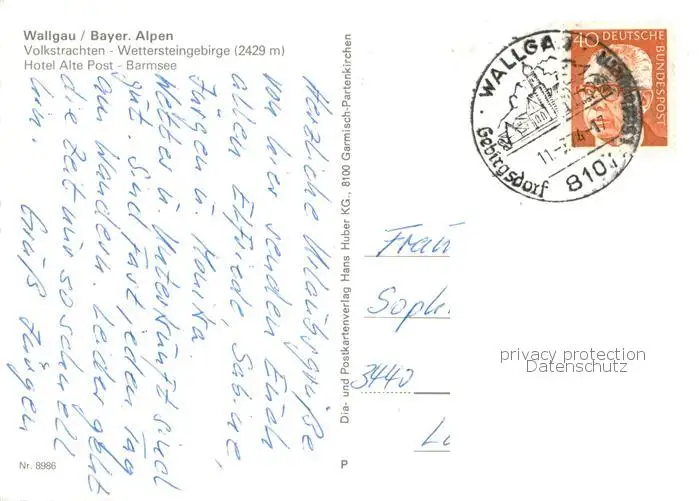 Wallgau / Bayer. Alpen
Volkstrachten - Wettersteingebirge (2429 m)
Hotel Alte Post - Barmsee
Herzliche Urlaubsgrüße
von hier senden Euch
allen Elfriede, Sabine,
Jürgen u. Monika.
Wetter u. Unterkunft sind
gut. Sind fast jeden Tag
am Wandern. Leider geht
die Zeit nur so schnell
hin.
Gruß Jürgen
Nr. 8986
P
Dia- und Postkartenverlag Hans Huber KG., 8100 Garmisch-Partenkirchen
WALLGAU
Gebirgsdorf
8101
40 DEUTSCHE
BUNDESPOST
Frau
Soph
3440
privacy protection
Datenschutz